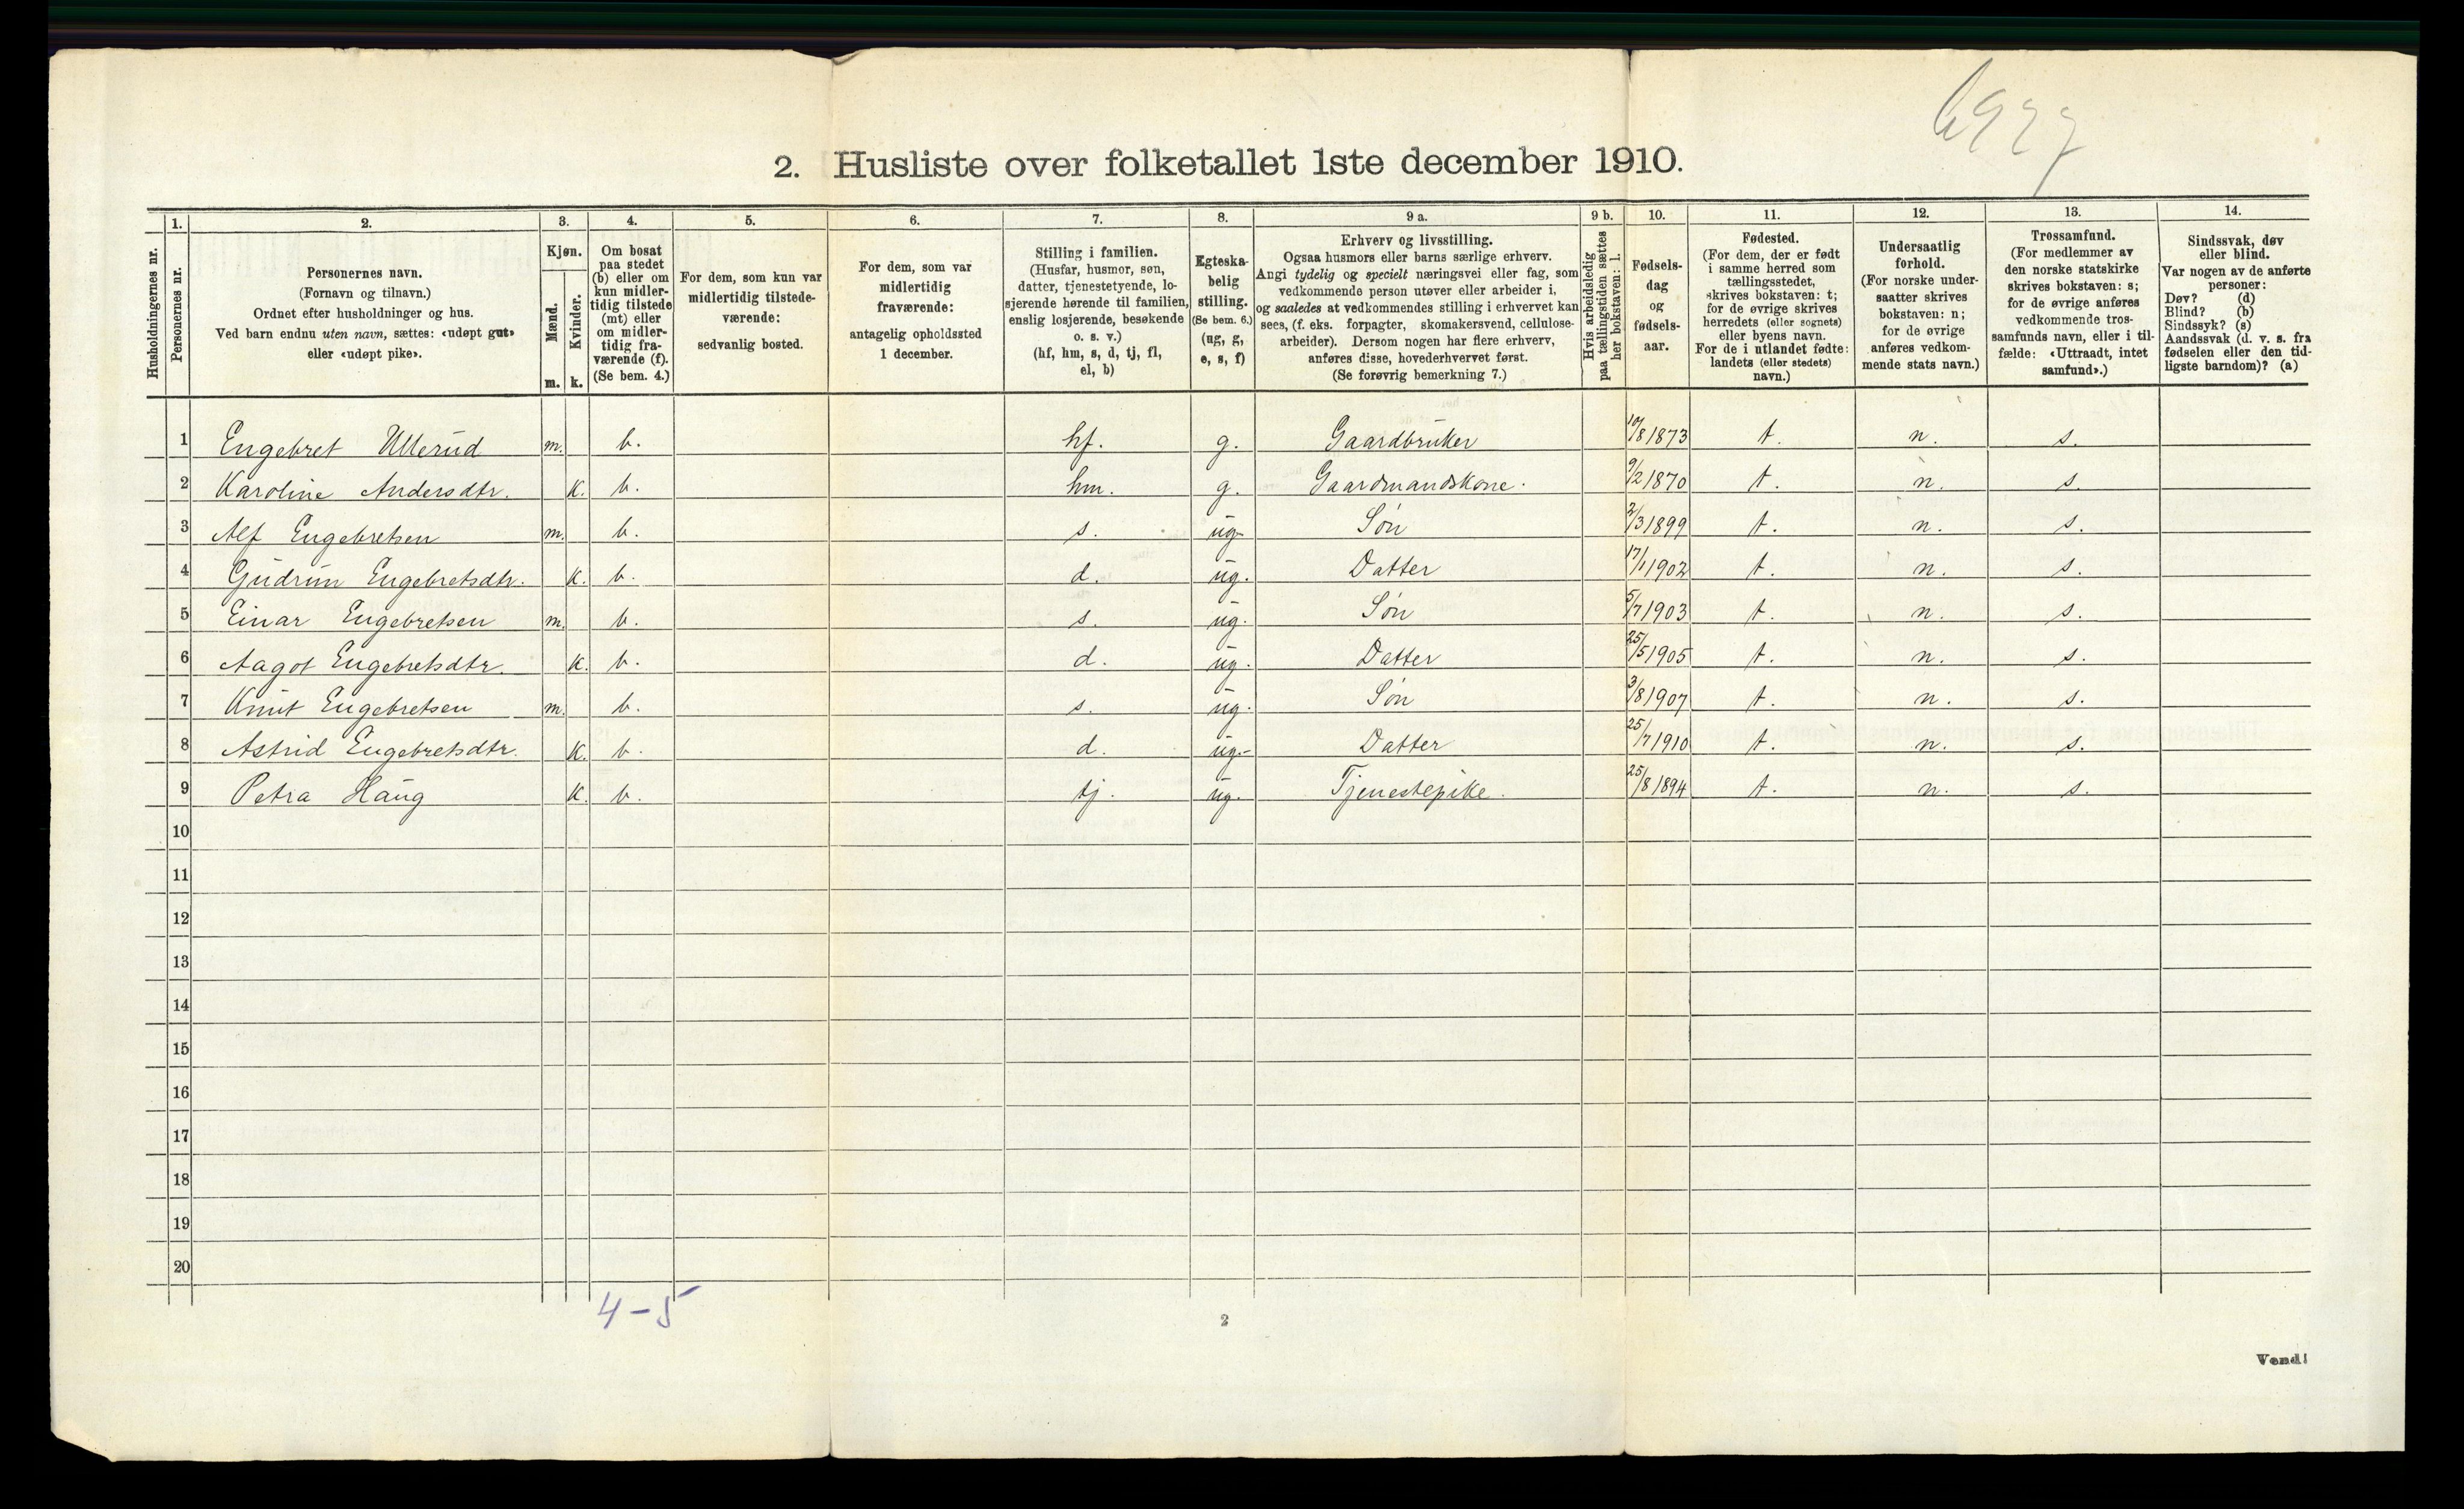 6937
2. Husliste over folketallet 1ste december 1910.
Husholdningernes nr.
1. Personernes nr.
2. Personernes navn. (Fornavn og tilnavn.) Ordnet efter husholdninger og hus. Ved barn endnu uten navn, sættes: «udøpt gut» eller «udøpt pike».
3. Kjøn. Mænd. m. Kvinder. k.
4. Om bosat paa stedet (b) eller om kun midlertidig tilstede (mt) eller om midlertidig fraværende (f). (Se bem. 4.)
5. For dem, som kun var midlertidig tilstedeværende: sedvanlig bosted.
6. For dem, som var midlertidig fraværende: antagelig opholdssted 1 december.
7. Stilling i familien. (Husfar, husmor, søn, datter, tjenestetyende, losjerende hørende til familien, enslig losjerende, besøkende o. s. v.) (hf, hm, s, d, tj, fl, el, b)
8. Egteskabelig stilling. (Se bem. 6.) (ug, g, e, s, f)
9 a. Erhverv og livsstilling. Ogsaa husmors eller barns særlige erhverv. Angi tydelig og specielt næringsvei eller fag, som vedkommende person utøver eller arbeider i, og saaledes at vedkommendes stilling i erhvervet kan sees, (f. eks. forpagter, skomakersvend, cellulosearbeider). Dersom nogen har flere erhverv, anføres disse, hovederhvervet først. (Se forøvrig bemerkning 7.)
9 b. Hvis arbeidsledig paa tællingstiden sættes her bokstaven: l.
10. Fødselsdag og fødselsaar.
11. Fødested. (For dem, der er født i samme herred som tællingsstedet, skrives bokstaven: t; for de øvrige skrives herredets (eller sognets) eller byens navn. For de i utlandet fødte: landets (eller stedets) navn.)
12. Undersaatlig forhold. (For norske undersaatter skrives bokstaven: n; for de øvrige anføres vedkommende stats navn.)
13. Trossamfund. (For medlemmer av den norske statskirke skrives bokstaven: s; for de øvrige anføres vedkommende trossamfunds navn, eller i tilfælde: «Uttraadt, intet samfund».)
14. Sindssvak, døv eller blind. Var nogen av de anførte personer: Døv? (d) Blind? (b) Sindssyk? (s) Aandssvak (d. v. s. fra fødselen eller den tidligste barndom)? (a)
1 Engebret Ullerud m. b. hf. g. Gaardbruker 10/8 1873 t. n. s.
2 Karoline Andersdtr. k. b. hm. g. Gaardmandskone. 9/2 1870 t. n. s.
3 Alf Engebretsen m. b. s. ug. Søn 2/3 1899 t. n. s.
4 Gudrun Engebretsdtr. k. b. d. ug. Datter 17/1 1902 t. n. s.
5 Einar Engebretsen m. b. s. ug. Søn 5/7 1903 t. n. s.
6 Aagot Engebretsdtr. k. b. d. ug. Datter 25/5 1905 t. n. s.
7 Knut Engebretsen m. b. s. ug. Søn 3/8 1907 t. n. s.
8 Astrid Engebretsdtr. k. b. d. ug. Datter 25/7 1910 t. n. s.
9 Petra Haug k. b. tj. ug. Tjenestepike. 25/8 1894 t. n. s.
10
11
12
13
14
15
16
17
18
19
20
4-5
2
Vend!